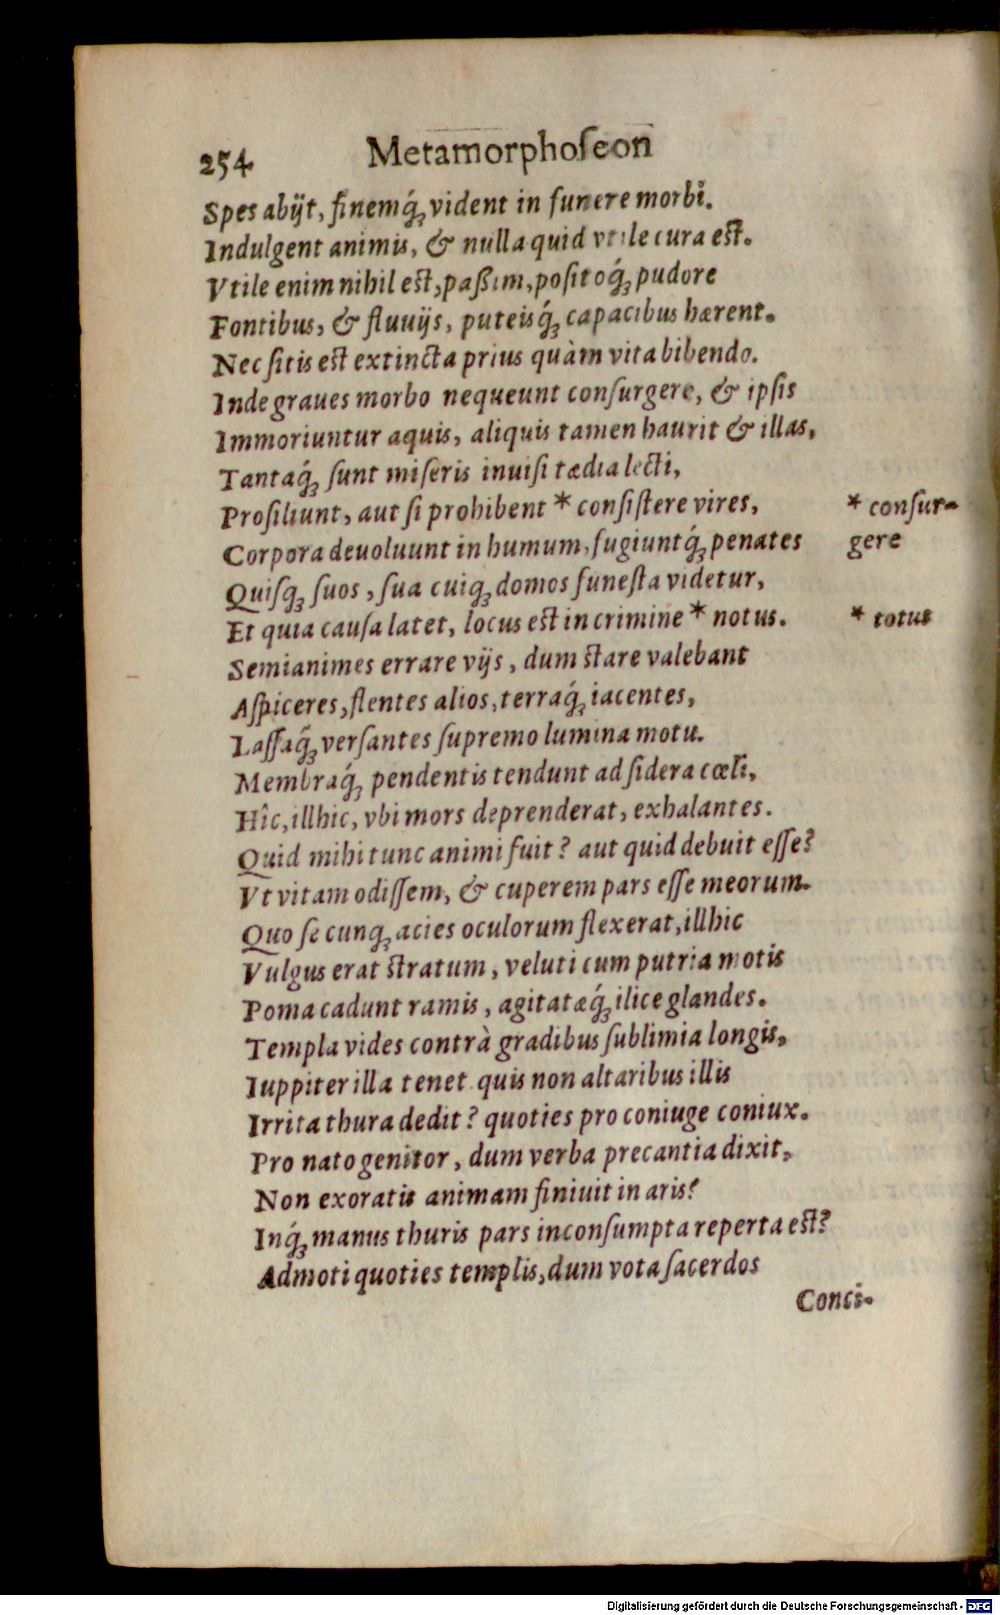 254 Metamorphoſeon
Spes abijt, finemq́ꝫ vident in funere morbi.
Indulgent animis, & nulla quid vtile cura eſt.
Vtile enim nihil eſt, paßim, poſitoq́ꝫ pudore
Fontibus, & fluuijs, puteisq́ꝫ capacibus hærent.
Nec ſitis eſt extincta prius quàm vita bibendo.
Inde graues morbo nequeunt conſurgere, & ipſis
Immoriuntur aquis, aliquis tamen haurit & illas,
Tantaq́ꝫ ſunt miſeris inuiſi tædia lecti,
Proſiliunt, aut ſi prohibent * conſiſtere vires, * conſur-
Corpora deuoluunt in humum, fugiuntq́ꝫ penates gere
Quiſqꝫ ſuos, ſua cuiqꝫ domos funeſta videtur,
Et quia cauſa latet, locus eſt in crimine * notus. * totus
Semianimes errare vijs, dum ſtare valebant
Aſpiceres, flentes alios, terraq́ꝫ iacentes,
Laſſaq́ꝫ verſantes ſupremo lumina motu.
Membraq́ꝫ pendentis tendunt ad ſidera cœli,
Hîc, illhic, vbi mors deprenderat, exhalantes.
Quid mihi tunc animi fuit? aut quid debuit eſſe?
Vt vitam odiſſem, & cuperem pars eſſe meorum.
Quo ſe cunqꝫ acies oculorum flexerat, illhic
Vulgus erat ſtratum, veluti cum putria motis
Poma cadunt ramis, agitatæq́ꝫ ilice glandes.
Templa vides contrà gradibus ſublimia longis,
Iuppiter illa tenet quis non altaribus illis
Irrita thura dedit? quoties pro coniuge coniux.
Pro nato genitor, dum verba precantia dixit,
Non exoratis animam finiuit in aris?
Inq́ꝫ manus thuris pars inconſumpta reperta eſt?
Admoti quoties templis, dum vota ſacerdos
Conci-
Digitalisierung gefördert durch die Deutsche Forschungsgemeinschaft - DFG